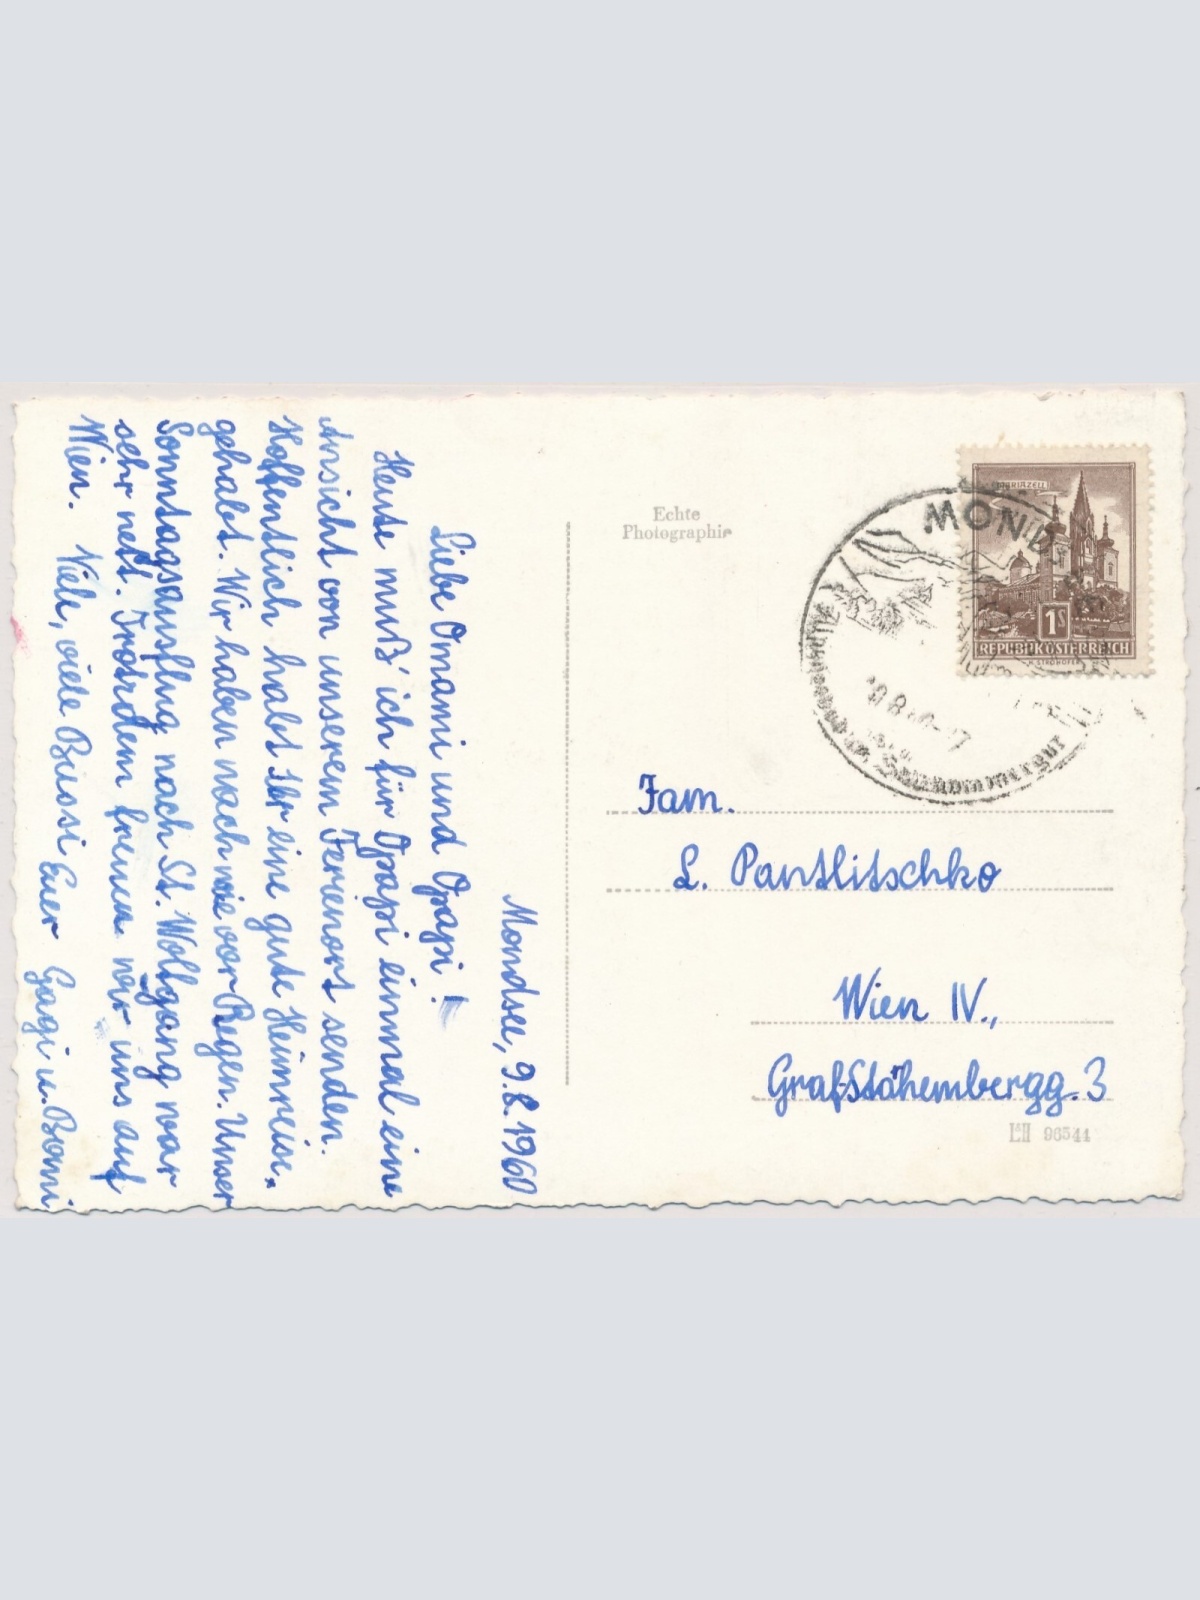 Mondsee, 9.8.1960
Liebe Omami und Opapi!
Heute muß' ich für Opapi einmal eine
Ansicht von unserem Ferienort senden.
Hoffentlich habt Ihr eine gute Heimreise
gehabt. Wir haben nach wie vor Regen. Unser
Sonntagsausflug nach St. Wolfgang war
sehr nett. Trotzdem freuen wir uns auf
Wien. Viele, viele Bussi Euer Gagi u. Bomi
Echte
Photographie
MARIAZELL
1S
REPUBLIK ÖSTERREICH
H. STROHOFER
MOND
Salzkammergut
Fam.
L. Pantlitschko
Wien IV.,
Graf-Stahembergg. 3
96544